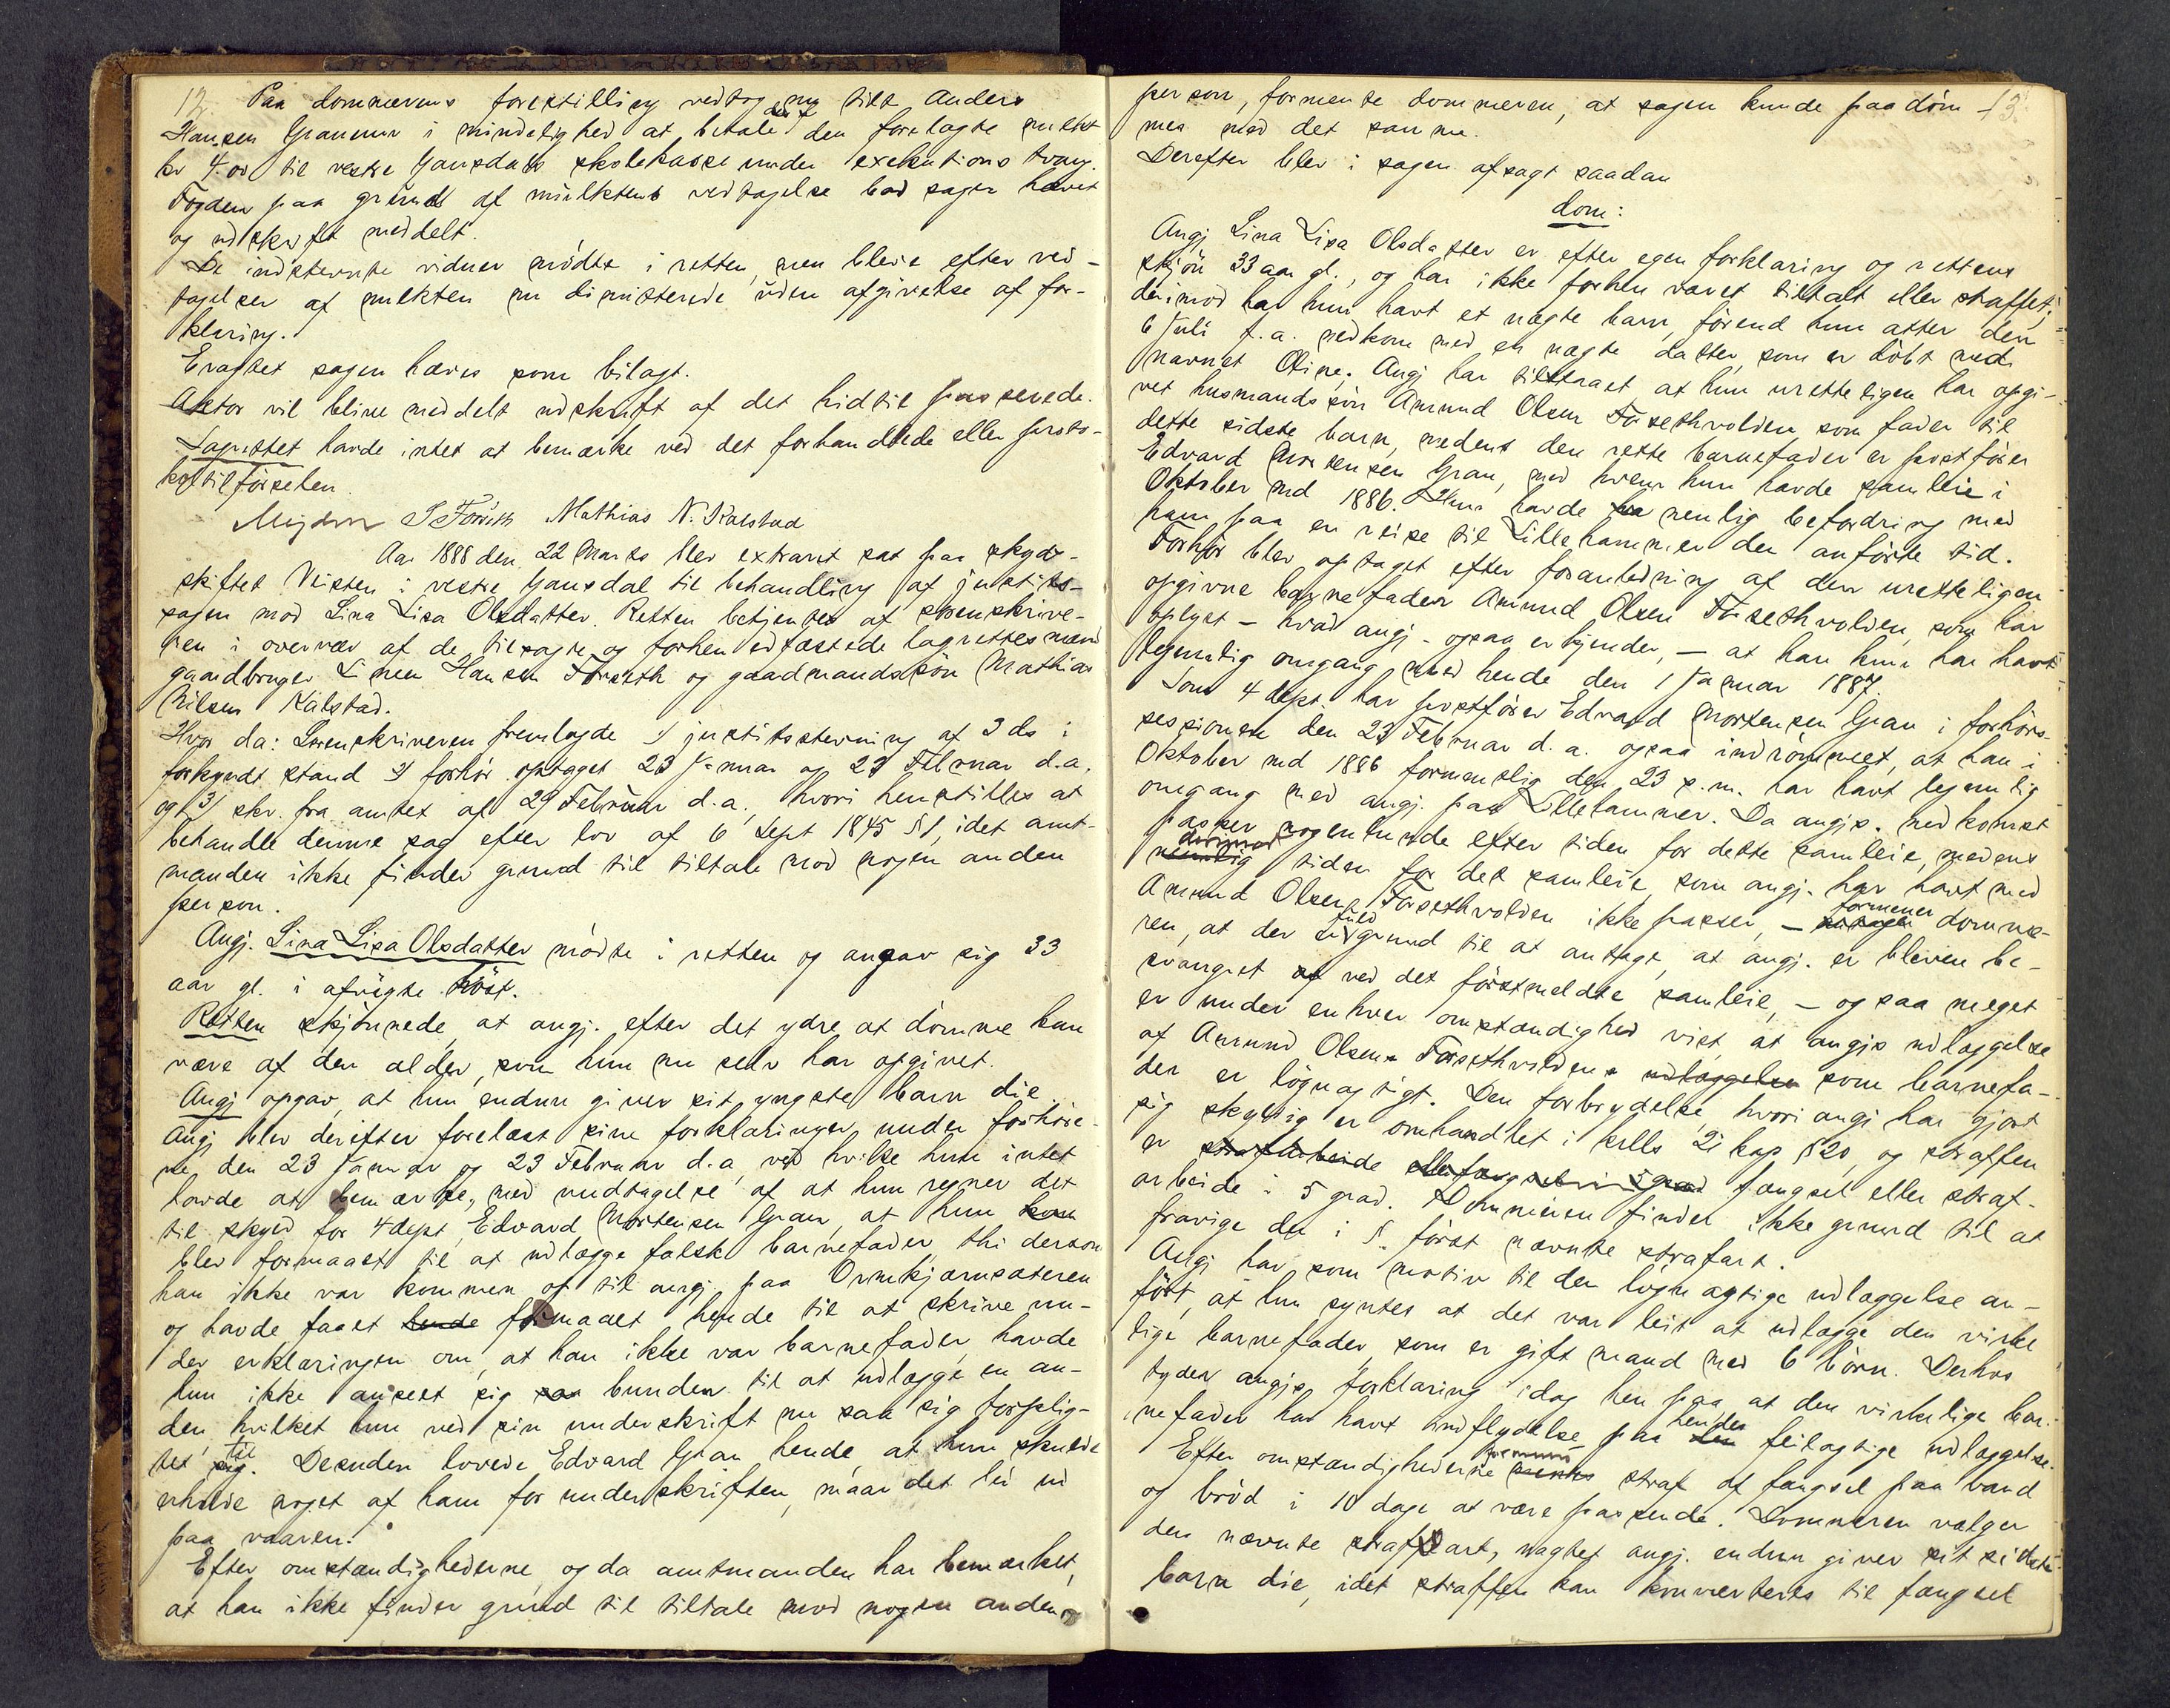 12.
Paa dommerens forestilling vedtog nu tilt. Anders
Hansen Granum i mindelighed at betale den forelagte mulkt
kr 4.00 til vestre Gausdals skolekasse under exekutions tvang.
Fogden paa grund af mulktens vedtagelse bad sagen hævet
og udskrift meddelt.
De indstevnte vidner mødte i retten, men bleve efter ved-
tagelsen af mulkten nu dimitterede uden afgivelse af for-
klaring.
Eragtet sagen hæves som bilagt.
Aktor vil blive meddelt udskrift af det hidtil passerede.
Lagrettet havde intet at bemærke ved det forhandlede eller proto-
koltilførselen.
S Forseth Mathias N. Kalstad
Aar 1888 den 22 Marts blev extraret sat paa skyds-
skiftet Veisten i vestre Gausdal til behandling af justits-
sagen mod Lina Lisa Olsdatter. Retten betjentes af sorenskrive-
ren i overvær af de tilsagte og forhen edfæstede lagrettesmænd
gaardbruger Simen Hansen Forseth og gaardmandssøn Mathias
Nilsen Kalstad.
Hvor da: Sorenskriveren fremlagde 1) justitsstevning af 3 ds i
forkyndt stand 2) forhør optaget 23 Januar og 23 Februar d.a.
og 3) skr. fra amtet af 29 Februar d.a., hvori henstilles at
behandle denne sag efter lov af 6 Sept 1845 § 1, idet amt-
manden ikke finder grund til tiltale mod nogen anden
person.
Angj. Lina Lisa Olsdatter mødte i retten og angav sig 33
aar gl. i afvigte høst.
Retten skjønnede, at angj. efter det ydre at dømme kan
være af den alder, som hun nu selv har opgivet.
Angj opgav, at hun endnu giver sit yngste barn die.
Angj blev derefter forelæst sine forklaringer under forhøre-
ne den 23 Januar og 23 Februar d.a, ved hvilke hun intet
havde at bemærke, med undtagelse af at hun regner det
til skyld for 4 dept Edvard Mortensen Gran, at hun kom
blev formaaet til at udlægge falsk barnefader, thi dersom
han ikke var kommen op til angj. paa Ormkjærnsæteren
og havde faaet hende formaaet hende til at skrive un-
der erklæringen om, at han ikke var barnefader, havde
hun ikke anseet sig saa bunden til at udlægge en an-
den, hvilket hun ved sin underskrift nu saa sig forplig-
tet til sig. Desuden lovede Edvard Gran hende, at hun skulde
erholde noget af ham for underskriften, naar det lei ud
paa vaaren.
Efter omstændighederne, og da amtmanden har bemærket,
at han ikke finder grund til tiltale mod nogen anden
13.
person, formente dommeren, at sagen kunde paadøm-
mes med det samme.
Derefter blev i sagen afsagt saadan
dom:
Angj Lina Lisa Olsdatter er efter egen forklaring og rettens
skjøn 33 aar gl., og har ikke forhen været tiltalt eller straffet;
derimod har hun havt et uægte barn, førend hun atter den
6 Juli f.a. nedkom med en uægte datter, som er døbt med
navnet Oline. Angj har tilstaaet at hun uretteligen har opgi-
vet husmandssøn Amund Olsen Forsethvolden som fader til
dette sidste barn, medens den rette barnefader er postfører
Edvard Mortensen Gran, med hvem hun havde samleie i
Oktober md 1886. Hun havde ha nemlig befordring med
ham paa en reise til Lillehammer den anførte tid.
Forhør blev optaget efter foranledning af den uretteligen
opgivne barnefader Amund Olsen Forsethvolden, som har
oplyst – hvad angj. ogsaa erkjender, – at han kun har havt
legemlig omgang med hende den 1 Januar 1887.
Som 4 dept. har postfører Edvard Mortensen Gran i forhørs-
sessionen den 23 Februar d.a. ogsaa indrømmet, at han i
Oktober md 1886 formentlig den 23 s.m. har havt legemlig
omgang med angj. paa Lillehammer. Da angjs. nedkomst
passer nogenlunde efter tiden for dette samleie, medens
derimod
nemlig tiden for det samleie, som angj. har havt med
Amund Olsen Forsethvolden ikke passer, – formener domme-
ren, at der fuld grund til at antage, at angj. er bleven be-
svangret af ved det førstmeldte samleie, – og saa meget
er under enhver omstændighed vist, at angjs udlæggelse
af Amund Olsen Forsethvoldens udlæggelse som barnefa-
der er løgnagtigt. Den forbrydelse, hvori angj har gjort
sig skyldig er omhandlet i krlls 21 kap § 20, og straffen
er strafarbeide eller fængsel i 5 grad fængsel eller straf-
arbeide i 5 grad. Dommeren finder ikke grund til at
fravige den i §. først nævnte strafart.
Angj har som motiv til den løgnagtige udlæggelse an-
ført, at hun syntes at det var leit at udlægge den virke
lige barnefader, som er gift mand med 6 børn. Derhos
tyder angjs forklaring idag hen paa, at den virkelige bar-
nefader har havt indflydelse paa hendes den feilagtige udlæggelse.
Efter omstændighederne formenes straf af fængsel paa vand
og brød i 10 dage at være passende. Dommeren vælger
den nævnte strafart, uagtet angj. endnu giver sit sidste
barn die, idet straffen kan konverteres til fængsel